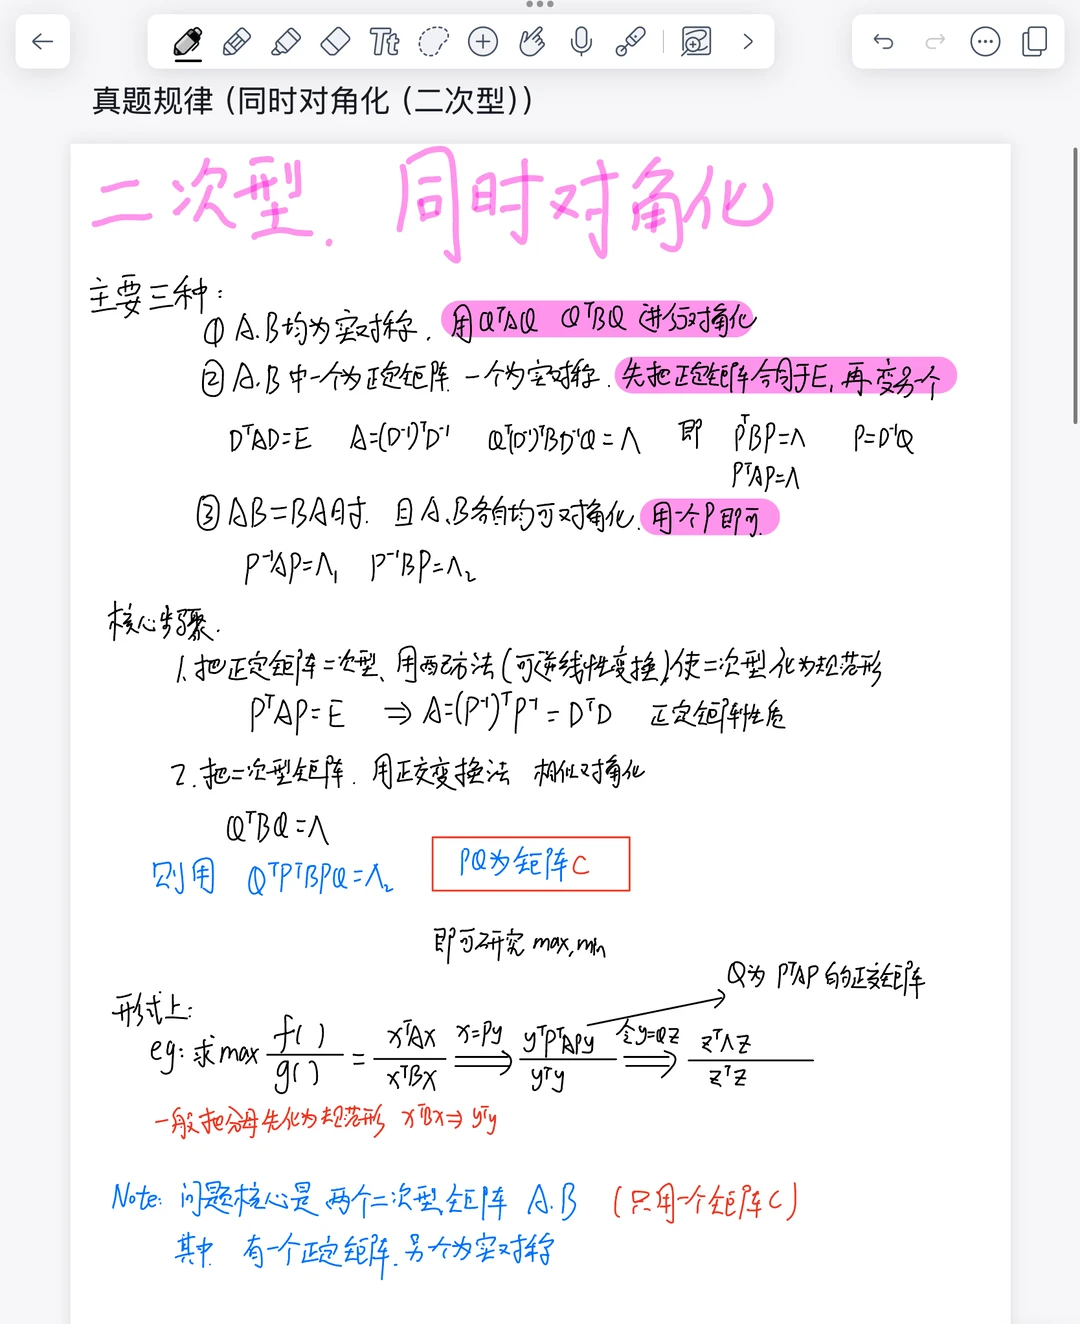 Tt
真题规律（同时对角化（二次型））
二次型. 同时对角化
主要三种：
① A.B均为实对称. 用QᵀAQ QᵀBQ 进行对角化
② A.B中一个为正定矩阵 一个为实对称. 先把正定矩阵合同于E, 再变另一个
DᵀAD=E A=(D⁻¹)ᵀD⁻¹ Qᵀ(D⁻¹)ᵀBD⁻¹Q=Λ 即 PᵀBP=Λ P=D⁻¹Q
PᵀAP=Λ
③ AB=BA时. 且A、B各自均可对角化. 用一个P即可.
P⁻¹AP=Λ₁ P⁻¹BP=Λ₂
核心步骤.
1. 把正定矩阵二次型、用配方法(可逆线性变换)使二次型化为规范形
PᵀAP=E ⇒ A=(P⁻¹)ᵀP⁻¹=DᵀD 正定矩阵性质
2. 把二次型矩阵. 用正交变换法 相似对角化
QᵀBQ=Λ
则用 QᵀPᵀBPQ=Λ₂ PQ为矩阵C
即可研究max,min
Q为PᵀAP的正交矩阵
形式上:
eg: 求max f( )/g( ) = xᵀAx/xᵀBx x=Py ⟹ yᵀPᵀAPy/yᵀy 令y=QZ ⟹ zᵀΛz/zᵀz
一般把分母先化为规范形 xᵀBx⇒yᵀy
Note: 问题核心是两个二次型矩阵 A.B (只用一个矩阵C)
其中 有一个正定矩阵.另个为实对称